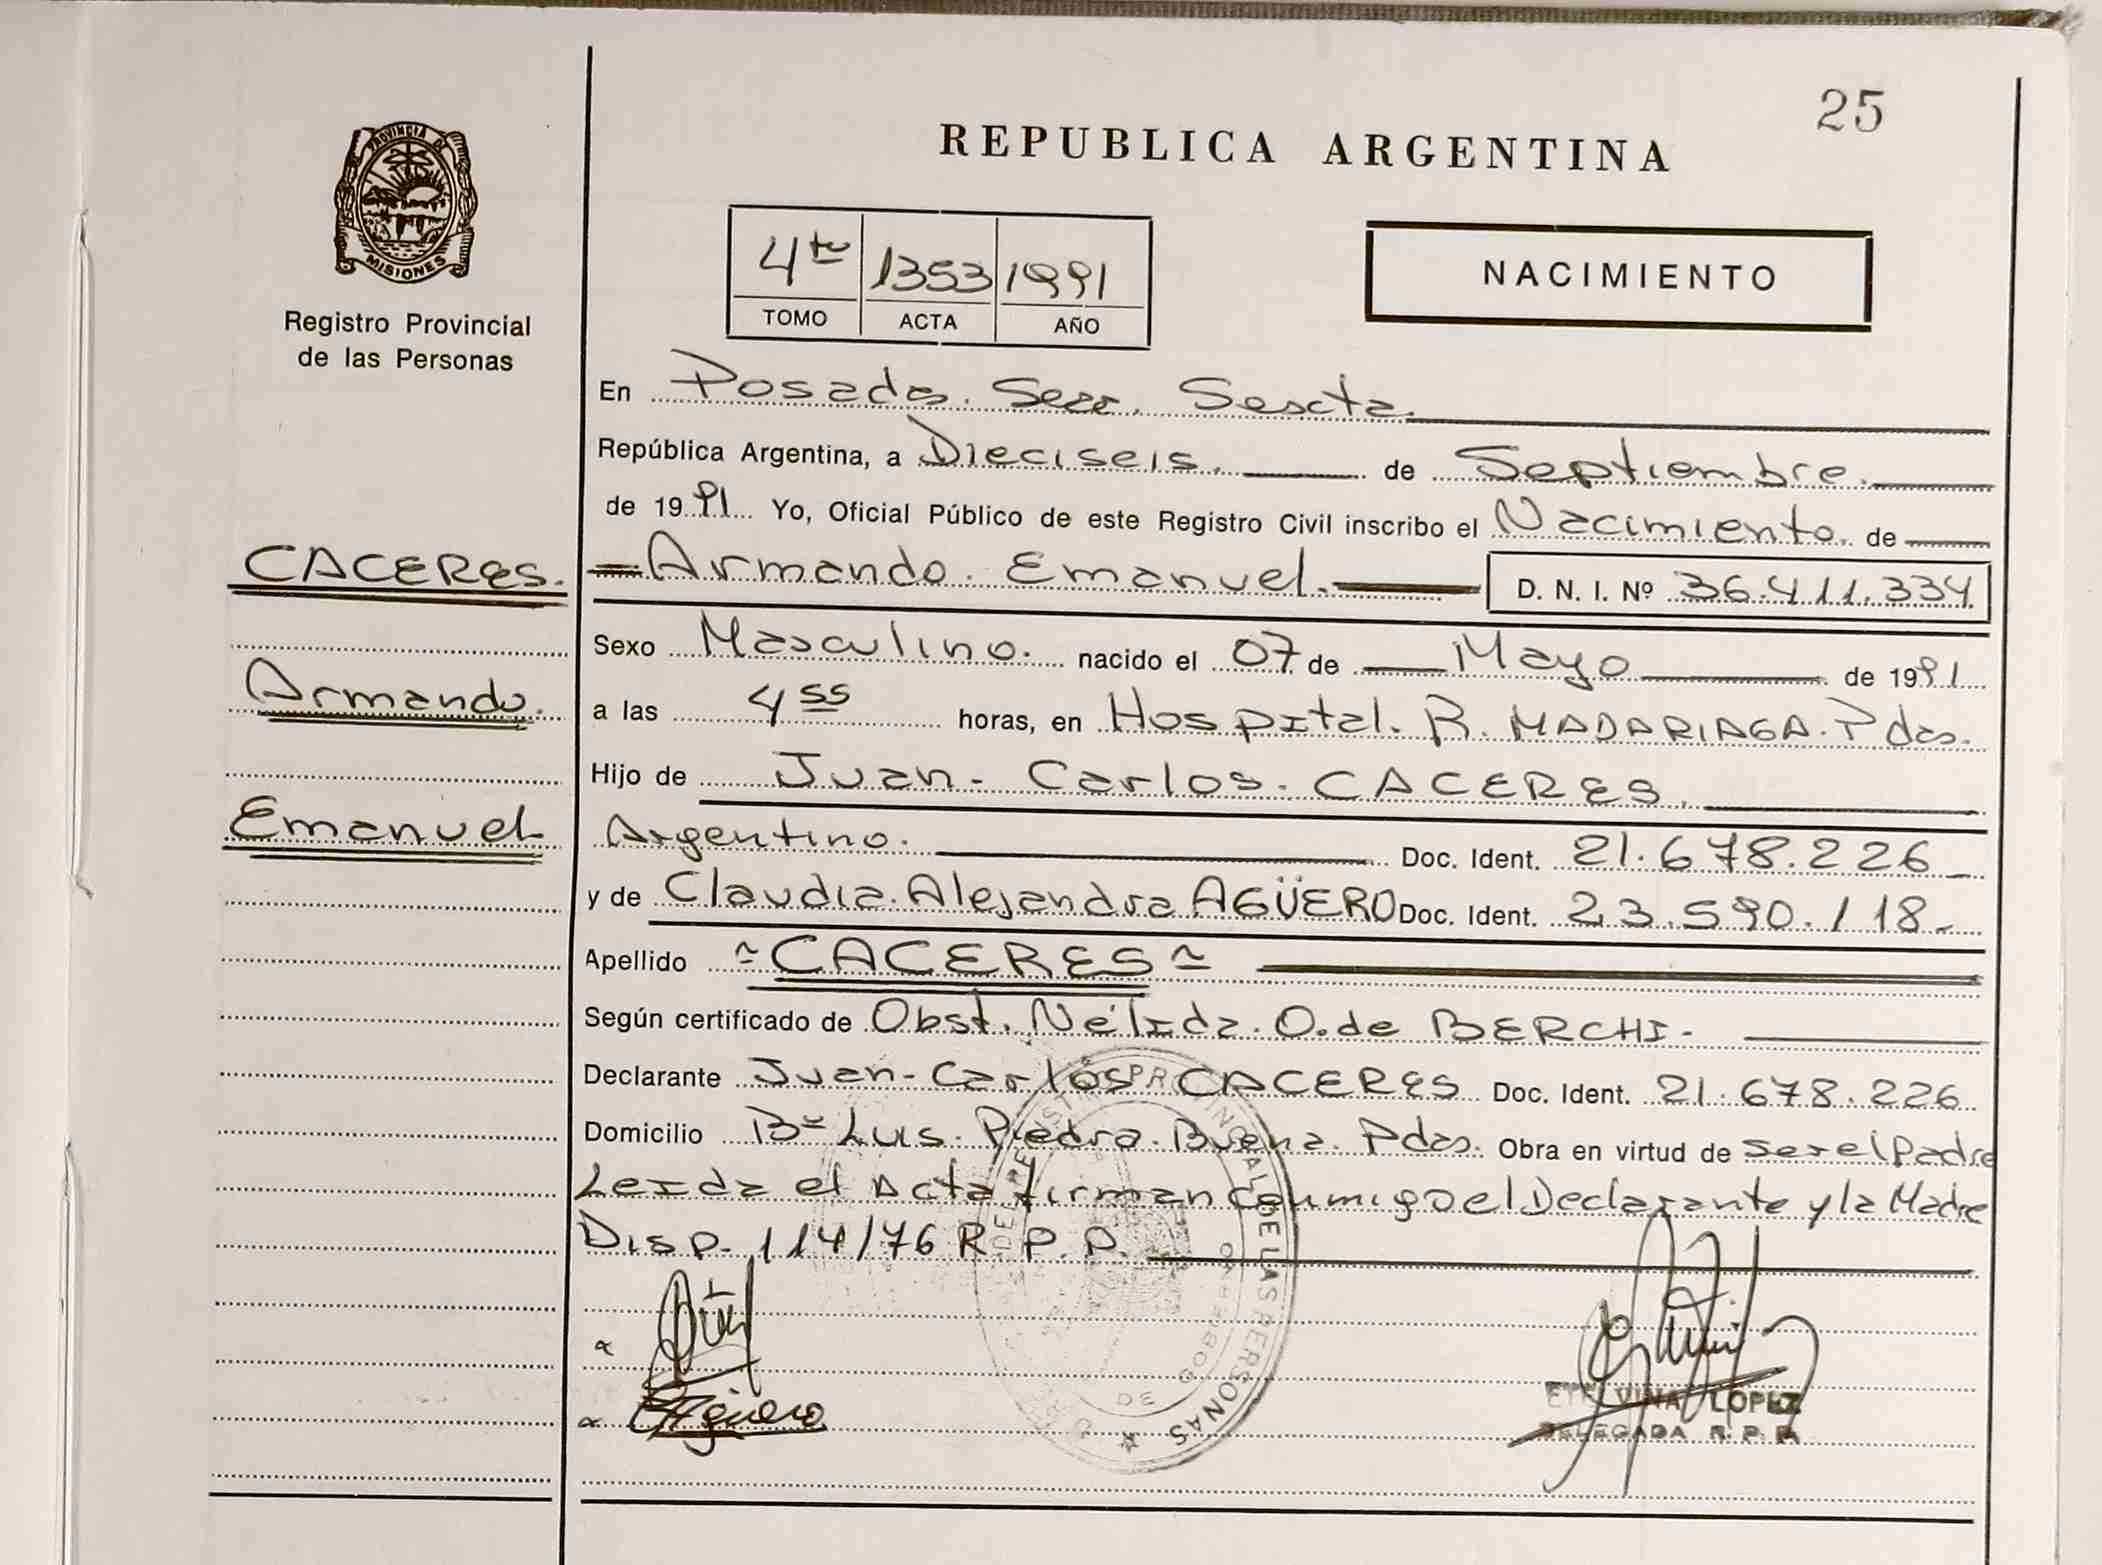 25
REPUBLICA ARGENTINA
PROVINCIA DE
MISIONES
Registro Provincial
de las Personas
4to 1353 1991
TOMO ACTA AÑO
NACIMIENTO
En Posadas. Secc. Sexcta.
República Argentina, a Dieciseis. de Septiembre.
de 1991 Yo, Oficial Público de este Registro Civil inscribo el Nacimiento. de
CACERES. Armando. Emanuel. D. N. I. Nº 36.411.334
Sexo Masculino. nacido el 07 de Mayo de 1991
Armando. a las 4 55 horas, en Hospital. R. MADARIAGA. Pdas.
Hijo de Juan- Carlos. CACERES.
Emanuel Argentino. Doc. Ident. 21.678.226
y de Claudia. Alejandra AGÜERO Doc. Ident. 23.590.118.
Apellido CACERES
Según certificado de Obst. Nélida. O. de BERCHI-
Declarante Juan-Carlos CACERES Doc. Ident. 21.678.226
Domicilio Bº Luis. Piedra. Buena. Pdas. Obra en virtud de ser el Padre
Leida el Acta firman conmigo el Declarante y la Madre
Disp. 114/76 R. P. P.
Agüero
ETELVINA LOPEZ
DELEGADA R. P. P.
DE LAS PERSONAS